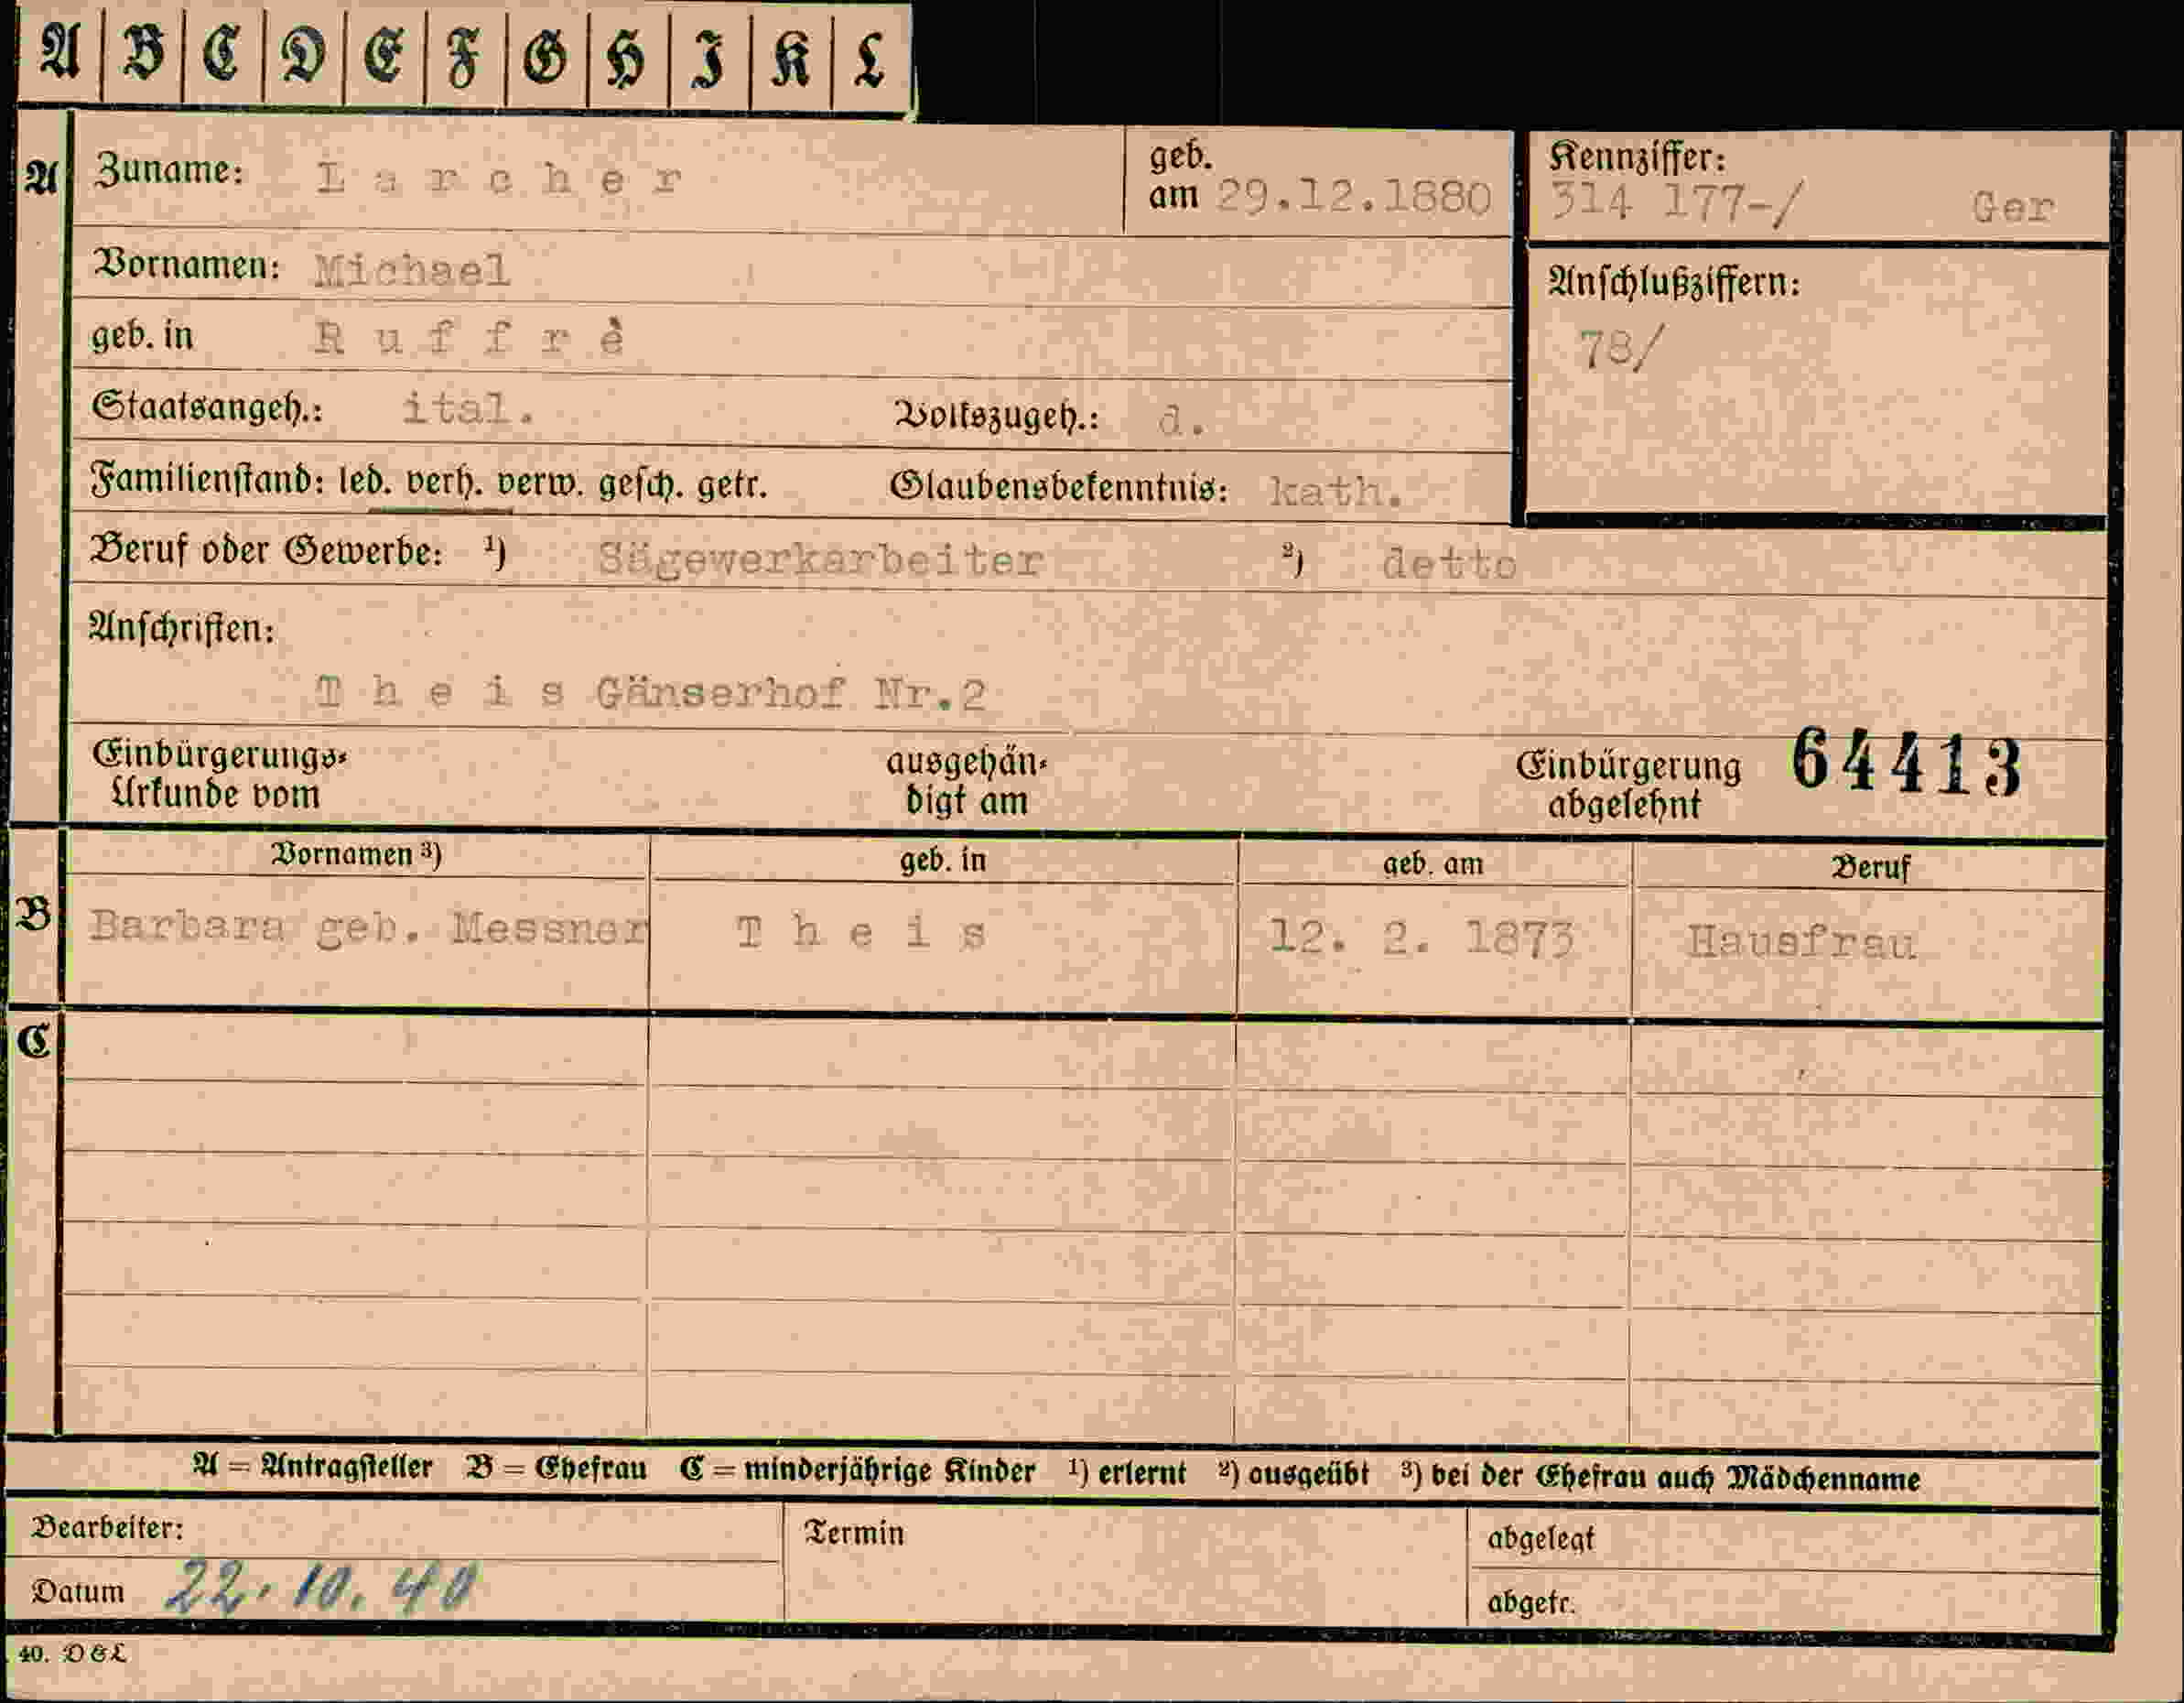 A B C D E F G H I K L
A Zuname: Larcher geb. am 29.12.1880 Kennziffer: 314 177-/ Ger
Vornamen: Michael
Anschlußziffern:
geb. in Ruffrè
78/
Staatsangeh.: ital. Volkszugeh.: d.
Familienstand: led. verh. verw. gesch. getr. Glaubensbekenntnis: kath.
Beruf oder Gewerbe: ¹) Sägewerkarbeiter ²) detto
Anschriften:
Theis Gänserhof Nr.2
Einbürgerungs- ausgehän- Einbürgerung 64413
Urkunde vom digt am abgelehnt
Vornamen ³) geb. in geb. am Beruf
B Barbara geb. Messner Theis 12. 2. 1873 Hausfrau
C
A = Antragsteller B = Ehefrau C = minderjährige Kinder ¹) erlernt ²) ausgeübt ³) bei der Ehefrau auch Mädchenname
Bearbeiter: Termin abgelegt
Datum 22.10.40 abgetr.
40. D&L